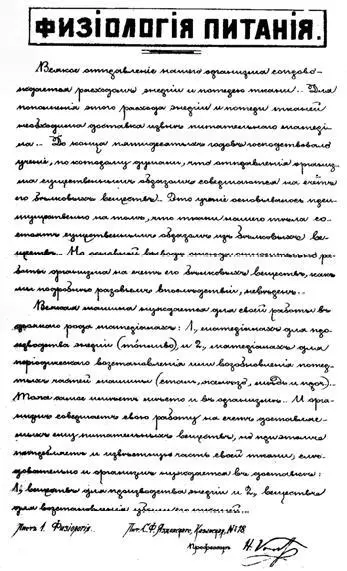 ФИЗІОЛОГІЯ ПИТАНІЯ.
Всякое отправленіе нашего организма сопрово-
ждается расходомъ энергіи и потерею ткани... Для
пополненія этого расхода энергіи и потери тканей
необходима доставка извнѣ питательнаго матеріа-
ла... До конца пятидесятыхъ годовъ господствовало
ученіе, по которому думали, что отправленія организ-
ма существеннымъ образомъ совершаются на счетъ
его бѣлковыхъ веществъ. Это ученіе основывалось преи-
мущественно на томъ, что ткани нашего тѣла со-
стоятъ существеннымъ образомъ изъ бѣлковыхъ ве-
ществъ... Но последній выводъ относительно ра-
боты организма на счетъ его бѣлковыхъ веществъ, какъ
мы подробно разовьемъ впослѣдствіи, невѣренъ...
Всякая машина нуждается для своей работы въ
двоякаго рода матеріалахъ: 1, матеріалахъ для про-
изводства энергіи (топливо), и 2, матеріалахъ для
періодическаго возстановленія или возобновленія потер-
тыхъ частей машины (сталь, желѣзо, мѣдь и пр.).
Тоже самое имѣетъ мѣсто и въ организмѣ... И орга-
низмъ совершаетъ свою работу на счетъ доставляе-
мыхъ ему питательныхъ веществъ, но при этомъ
потребляетъ и извѣстную часть своей ткани, слѣ-
довательно и организмъ нуждается въ доставкѣ:
1, веществъ для производства энергіи и 2, веществъ
для возстановленія тканей...
Листъ 1. Физіологія. Лит. С.Ф. Яздовскаго, №18.
Профессоръ